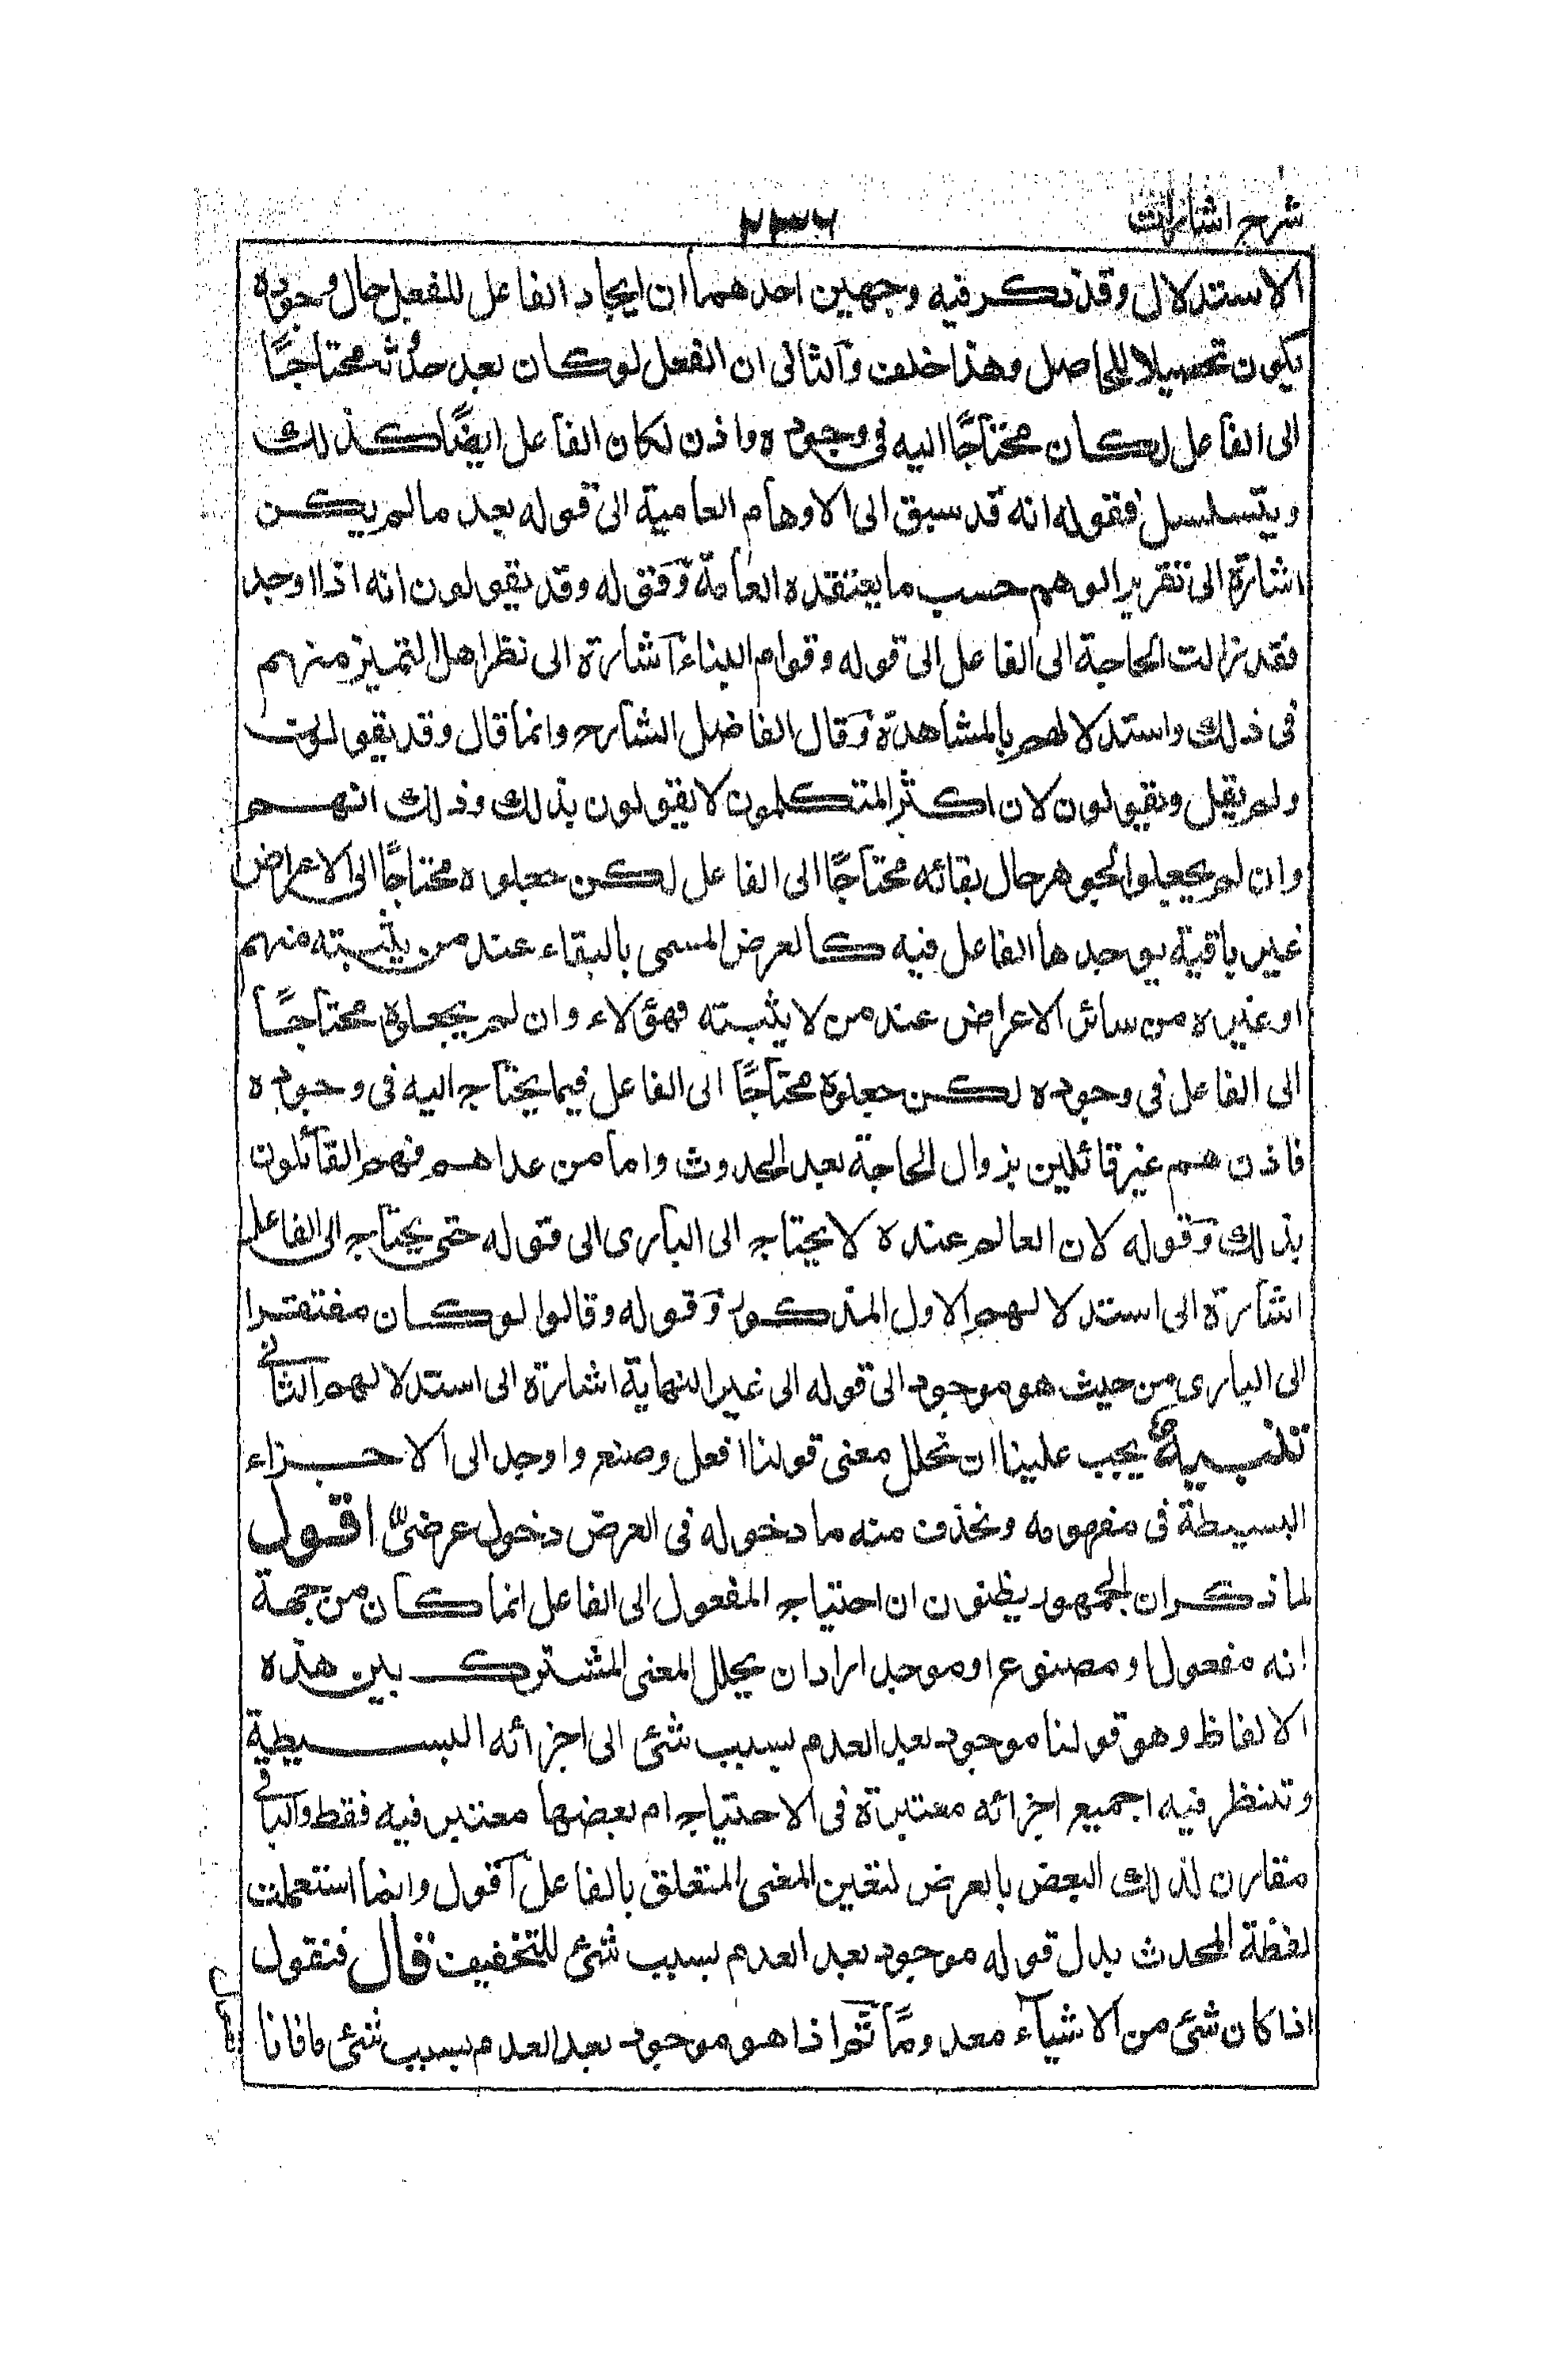 شرح اشارات
٢٣٦
الاستدلال وقد ذكر فيه وجهين احدهما ان ايجاد الفاعل للفعل حال وجوده
يكون تحصيلا للحاصل وهذا خلف والثانى ان الفعل لو كان بعد حدوثه محتاجًا
الى الفاعل لكان محتاجًا اليه فى وجوده واذن لكان الفاعل ايضًا كذلك
ويتسلسل فقوله انه قد سبق الى الاوهام العامية الى قوله بعد ما لم يكن
اشارة الى تقرير الوهم حسب ما يعتقده العامة وقوله وقد يقولون انه اذا اوجد
فقد زالت الحاجة الى الفاعل الى قوله وقوام البناء اشارة الى نظر اهل التميز منهم
فى ذلك واستدلالهم بالمشاهدة وقال الفاضل الشارح وانما قال وقد يقولون
ولم يقل ويقولون لان اكثر المتكلمون لا يقولون بذلك وذلك انهم
وان لم يجعلوا الجوهر حال بقائه محتاجًا الى الفاعل لكن جعلوه محتاجًا الى الاعراض
غير باقية يوجدها الفاعل فيه كالعرض المسمى بالبقاء عند من يثبته منهم
او غيره من سائر الاعراض عند من لا يثبته فهؤلاء وان لم يجعلوه محتاجًا
الى الفاعل فى وجوده لكن جعلوه محتاجًا الى الفاعل فيما يحتاج اليه فى وجوده
فاذن هم غير قائلين بزوال الحاجة بعد الحدوث واما من عداهم فهم القائلون
بذلك وقوله لان العالم عنده لا يحتاج الى البارى الى قوله حتى يحتاج الى الفاعل
اشارة الى استدلالهم الاول المذكور وقوله وقالوا لو كان مفتقرا
الى البارى من حيث هو موجود الى قوله الى غير النهاية اشارة الى استدلالهم الثانى
تنبيه يجب علينا ان نحلل معنى قولنا افعل وصنع واوجد الى الاجزاء
البسيطة فى مفهومه ونحذف منه ما دخوله فى العرض دخول عرضىٌ اقول
لما ذكر ان الجمهور يظنون ان احتياج المفعول الى الفاعل انما كان من جهة
انه مفعول او مصنوع او موجد اراد ان يحلل المعنى المشترك بين هذه
الالفاظ وهو قولنا موجود بعد العدم بسبب شئ الى اجزائه البسيطية
وتنظر فيه اجميع اجزائه معتبرة فى الاحتياج ام بعضها معتبر فيه فقط والباقى
مقارن لذلك البعض بالعرض لتعين المعنى المتعلق بالفاعل اقول وانما استعملت
لفظة المحدث بدل قوله موجود بعد العدم بسبب شئ للتخفيف قال فنقول
اذا كان شئ من الاشياء معدومًا ثم اذا هو موجود بعد العدم بسبب شئ ما فانا